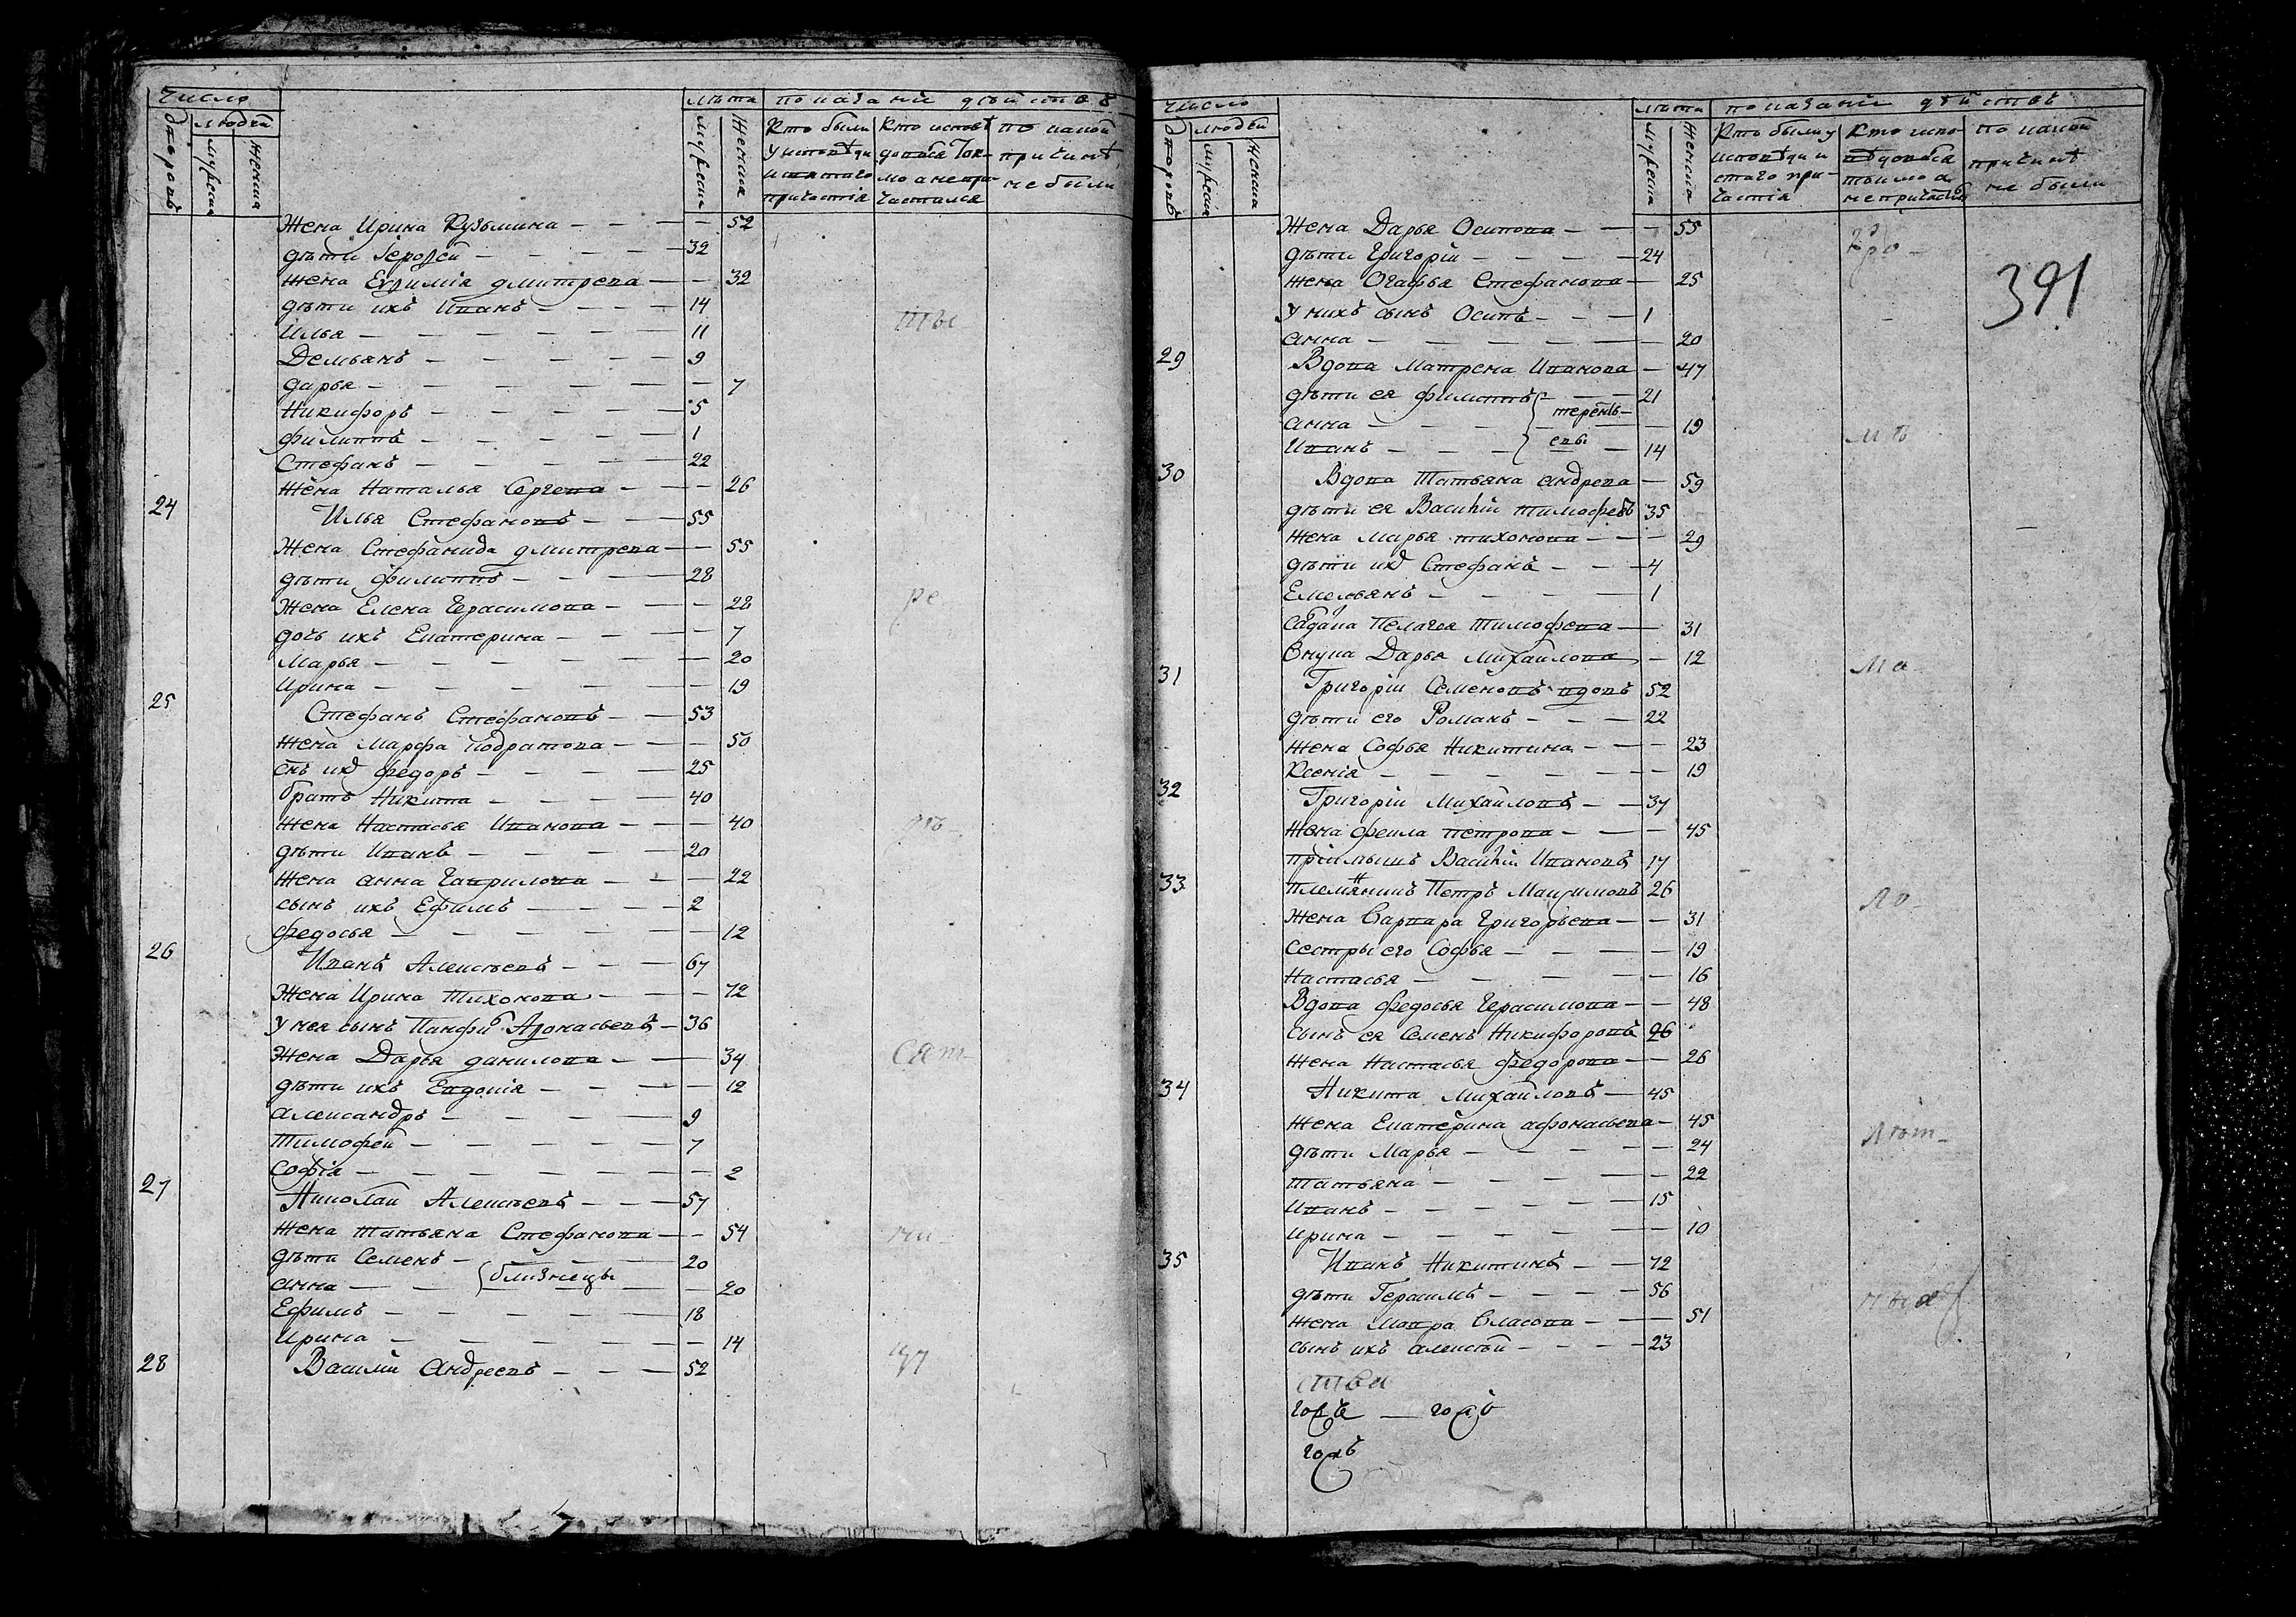 Число
лѣта показаніи дѣйствъ
дворовъ
людей
мужеска
женска
мужеска
женска
Кто были у исповѣди и святаго причастія
Кто исповѣдовался токмо а не причастился
по какой причинѣ не были
Жена Ирина Кузьмина — — — — 52
дѣти Ѳерофей — — — — 32
Жена Евфимія дмитрева — — 32
дѣти ихъ Иванъ — — — 14
Илья — — — — — 11
Демьянъ — — — — — 9
дарья — — — — — — 7
Никифоръ — — — — — 5
филиппъ — — — — — 1
Стефанъ — — — — — 22
Жена Наталья Сергева — — — 26
24 Илья Стефановъ — — 55
Жена Стефанида дмитрева — — 55
дѣти филиппъ — — — 28
Жена Елена Герасимова — — — 28
дочь ихъ Екатерина — — — — 7
Марья — — — — — — 20
Ирина — — — — — — 19
25 Стефанъ Стефановъ — — 53
Жена Марфа Кодратова — — — 50
снъ их федоръ — — — — 25
братъ Никита — — — — 40
Жена Настасья Иванова — — — 40
дѣти Иванъ — — — — 20
Жена анна Гаврилова — — — 22
сынъ ихъ Ефимъ — — — — 2
федосья — — — — — — 12
26 Иванъ Алексѣевъ — — — 67
Жена Ирина Тихонова — — — 72
У нея сынъ Панфил Афонасьевъ — 36
Жена Дарья данилова — — — 34
дѣти ихъ Евдокія — — — — 12
александръ — — — — 9
Тимофей — — — — — 7
Софія — — — — — — 2
27 Николай Алексѣевъ — — — 57
Жена татьяна Стефанова — — 54
дѣти Семенъ — — — — 20
анна — — близнецы — — 20
Ефимъ — — — — — 18
Ирина — — — — — — 14
28 Василій Андреевъ — — — 52
ты
ре
дѣ
сят
ни
Число
лѣта показаніи дѣйствъ
дворовъ
людей
мужеска
женска
мужеска
женска
Кто были у исповѣди и стаго причастія
Кто исповѣдовался тыкмо а не причастил
по какой причинѣ не были
391
Жена Дарья Осипова — — — 55
дѣти Григорій — — — — 24
жена Огафья Стефанова — 25
У нихъ сынъ Осипъ — — — 1
анна — — — — — — 20
29 Вдова Матрена Иванова — 47
дѣти ея филиппъ — — — 21
теренть-
анна — — — — — 19
евы
Иванъ — — — — 14
30 Вдова Татьяна андрева — 59
дѣти ея Василій тимофевъ 35
Жена Марья тихонова — — — 29
дѣти их Стефанъ — — — 4
Емельянъ — — — — 1
Пелагея Тимофева — 31
Внука Дарья Михайлова — 12
31 Григорій Семеновъ вдовъ 52
дѣти его Романъ — — — 22
жена Софья Никитина — — — 23
Ксенія — — — — — — 19
32 Григорій Михайловъ — — 37
Жена фекла петрова — — — 45
пріимышъ Василій Ивановъ 17
33 племянникъ Петръ Максимовъ 26
Жена Варвара Григорьева — — 31
Сестры его Софья — — — — 19
Настасья — — — — — 16
Вдова федосья Герасимова — — 48
Сынъ ея Семенъ Никифоровъ 26
Жена Настасья федорова — — 26
34 Никита Михайловъ — 45
Жена Екатерина афонасьева — 45
дѣти Марья — — — — — 24
Татьяна — — — — — 22
Иванъ — — — — — 15
Ирина — — — — — — 10
35 Иванъ Никитинъ — — 72
дѣти Герасимъ — — — — 56
Жена Мавра Власова — — — 51
сынъ ихъ алексѣй — — — — 23
мѣ
ма
ло
лѣт
ства
годъ